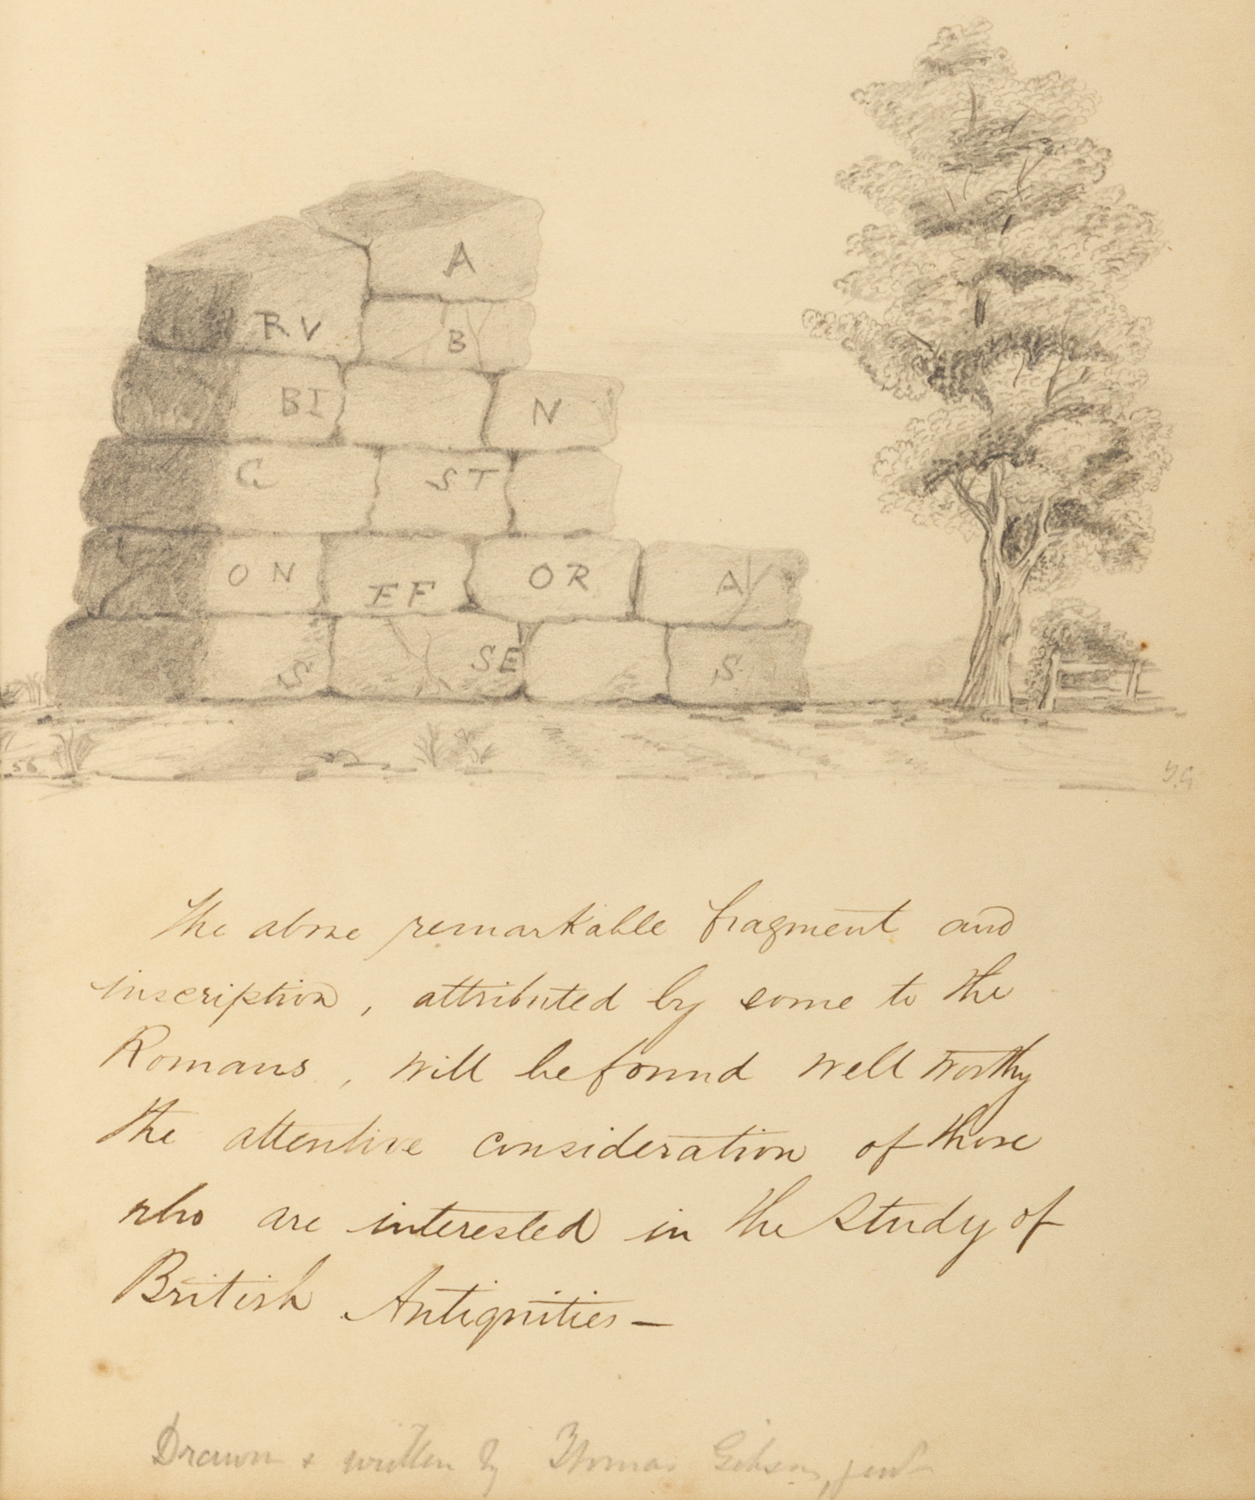 A
RV B
BI N
C ST
ON EF OR A
S SE S
56
T.G
The above remarkable fragment and
inscription, attributed by some to the
Romans, will be found well worthy
the attentive consideration of those
who are interested in the Study of
British Antiquities —
Drawn & written by Thomas Gibson, junr